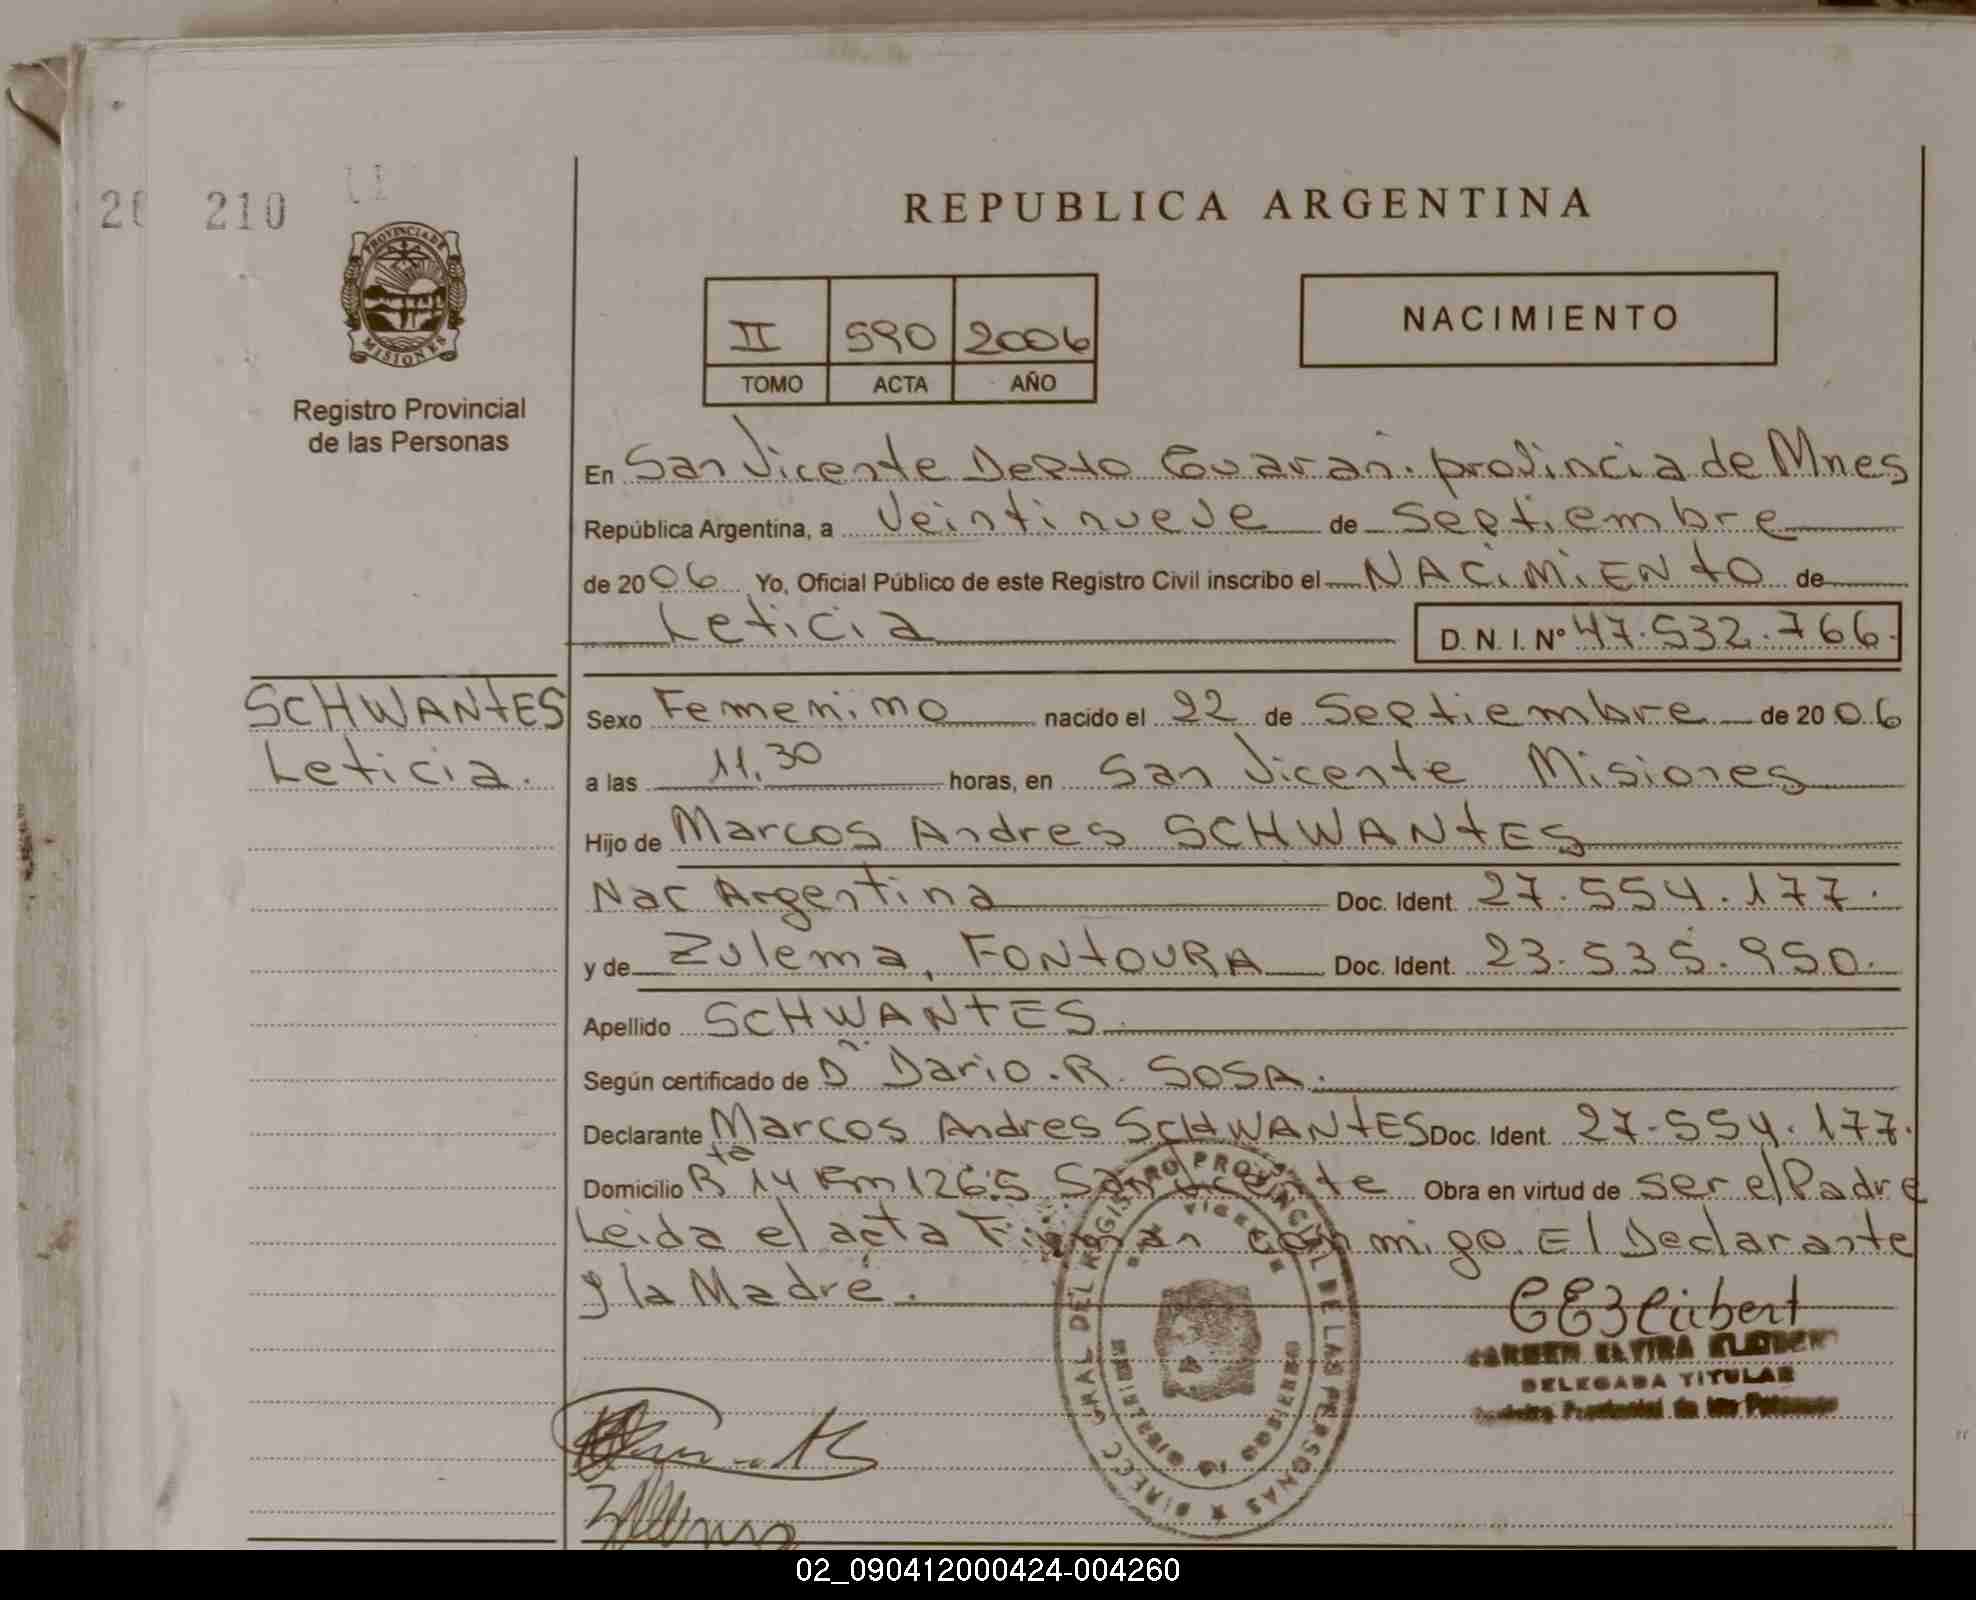 210
PROVINCIA DE
MISIONES
Registro Provincial
de las Personas
REPUBLICA ARGENTINA
II 590 2006
TOMO ACTA AÑO
NACIMIENTO
En San Vicente Depto Guaraní. provincia de Mnes
República Argentina, a Veintinueve de Septiembre
de 2006 Yo, Oficial Público de este Registro Civil inscribo el NACiMiENtO de
Leticia D. N. I. Nº 47.532.766.
SCHWANtES
Leticia.
Sexo Femenino nacido el 22 de Septiembre de 2006
a las 11,30 horas, en San Vicente Misiones
Hijo de Marcos Andres SCHWANtES
Nac Argentina Doc. Ident. 27.554.177.
y de Zulema, FONtOURA Doc. Ident. 23.535.950.
Apellido SCHWANtES.
Según certificado de Dr. Dario.R. SOSA.
Declarante Marcos Andres SCHWANtES Doc. Ident. 27.554.177.
Domicilio Rta 14 Km 1265 San Vicente Obra en virtud de ser el Padre
Leida el acta Firman conmigo. El Declarante
y la Madre.
DIRECC. GRAL DEL REGISTRO PROVINCIAL DE LAS PERSONAS
SAN VICENTE
DELEGADA TITULAR
02_090412000424-004260